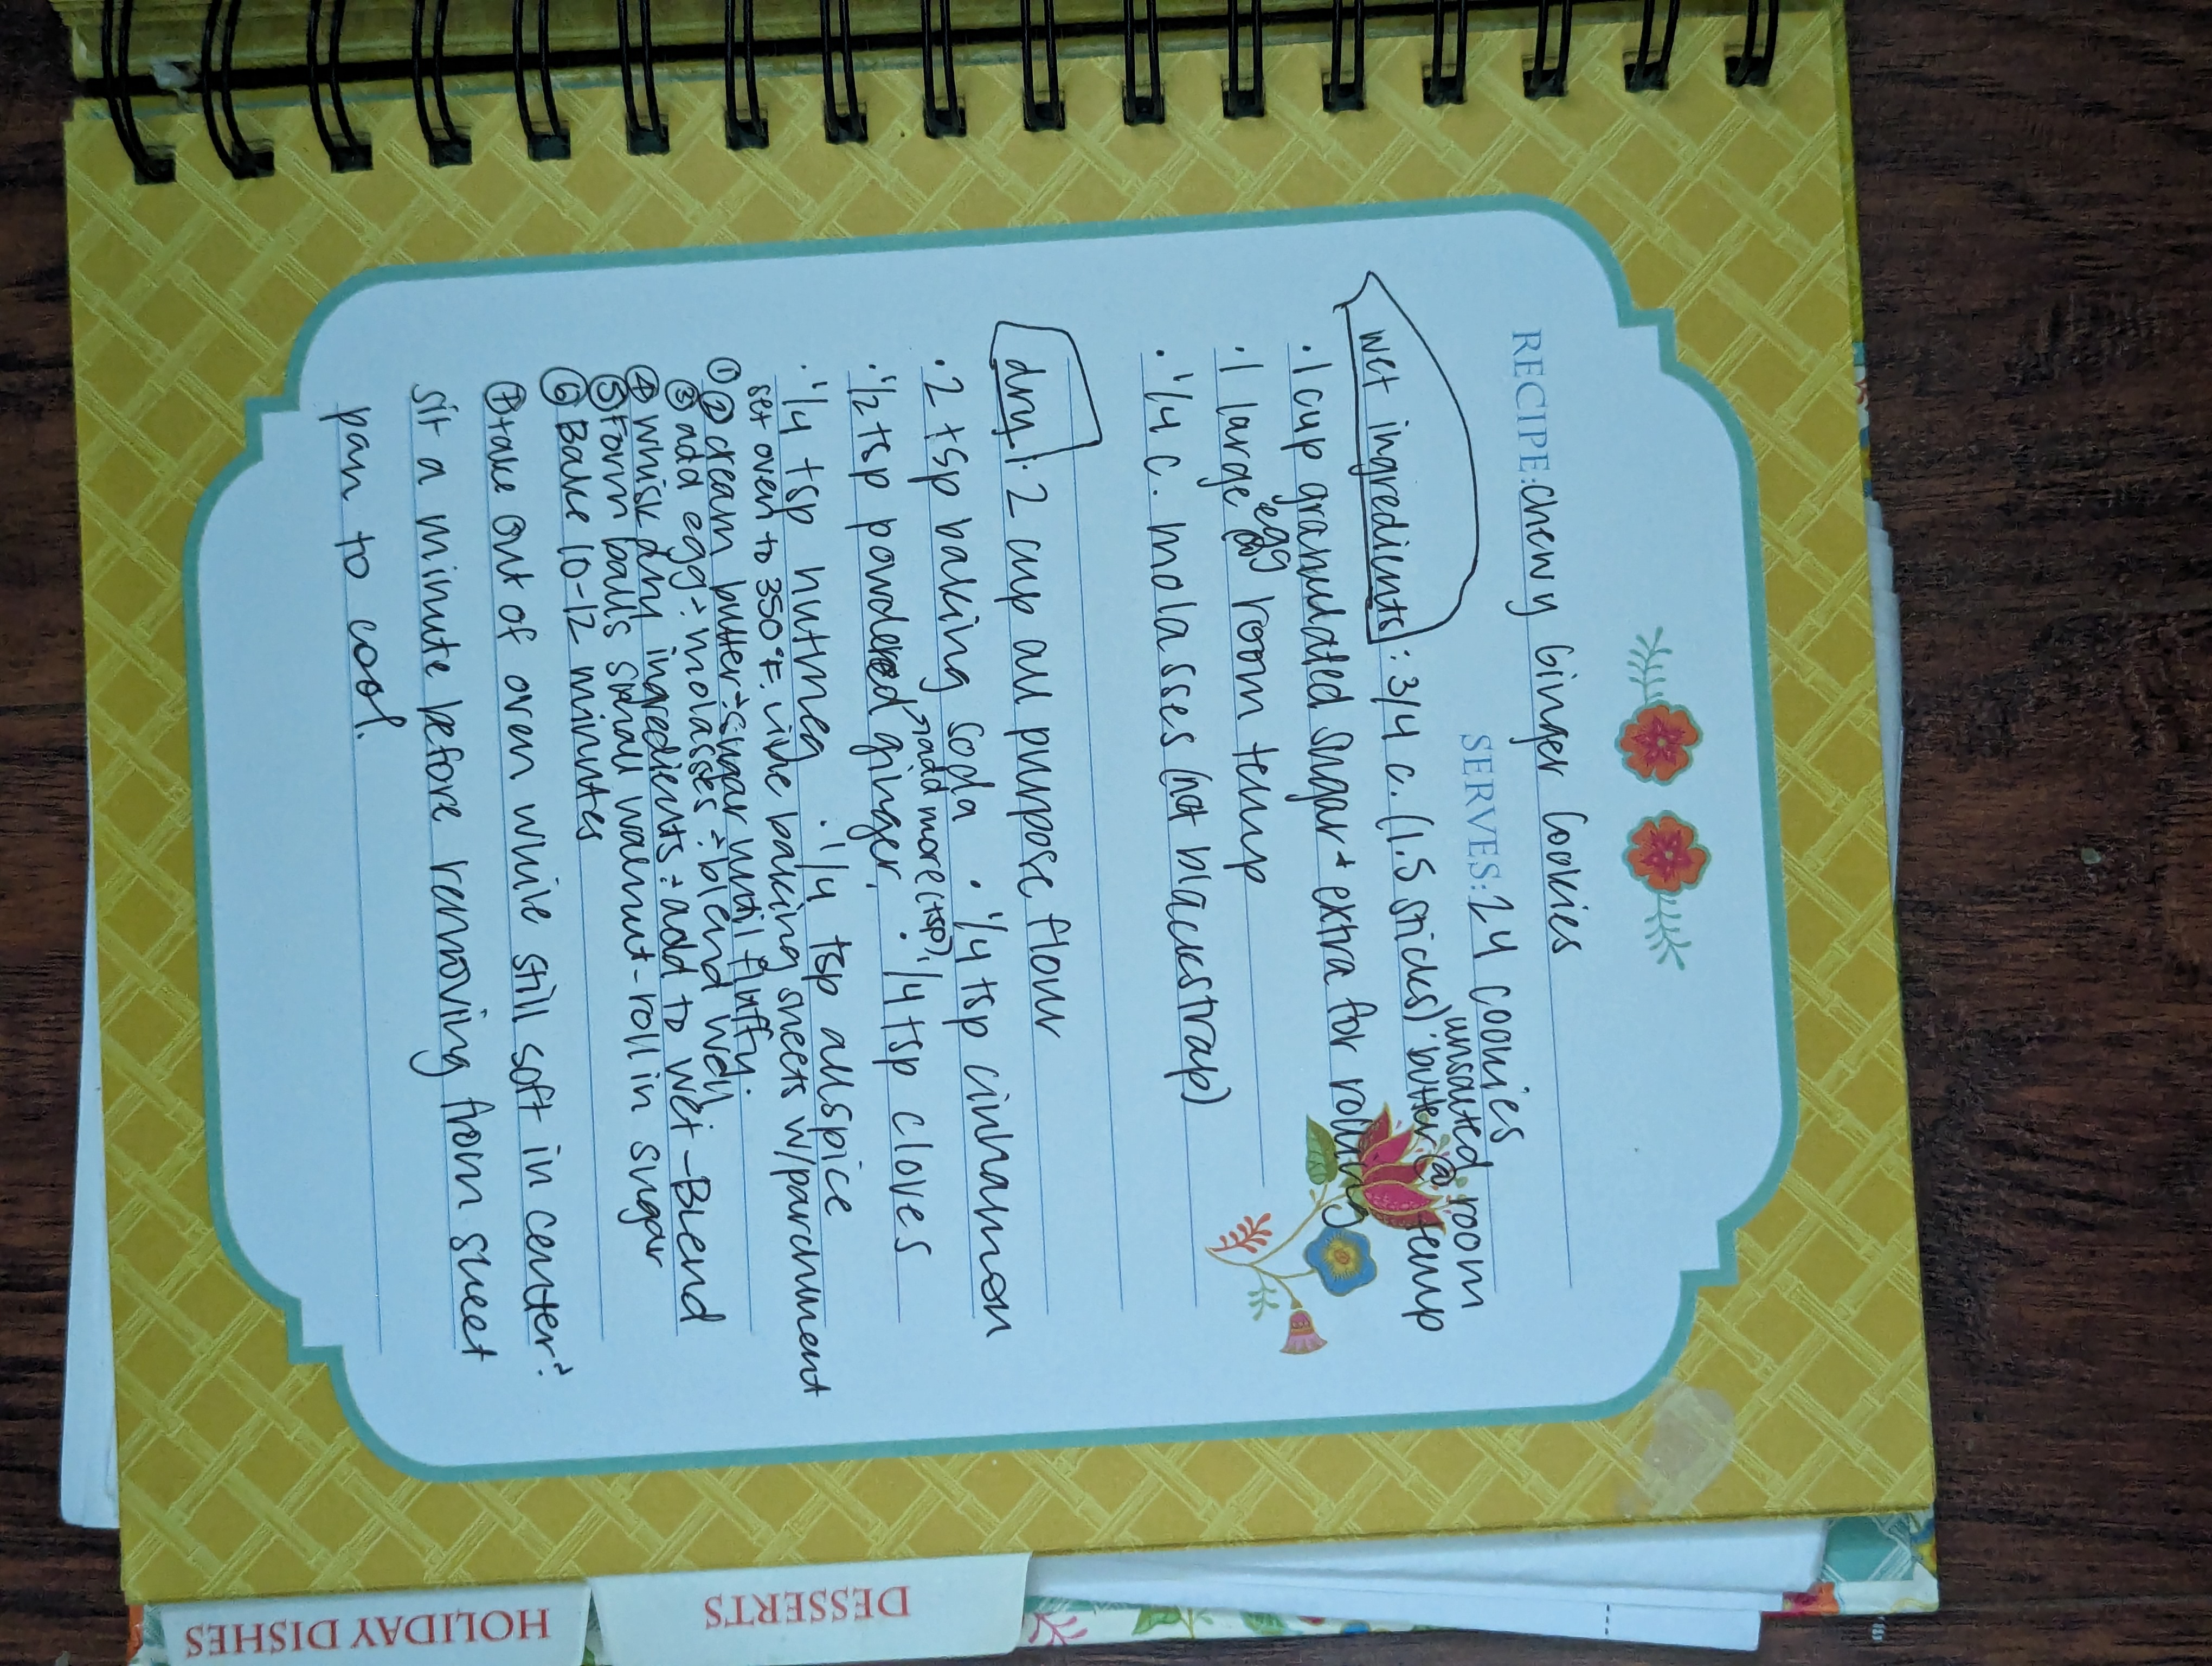 RECIPE: Chewy Ginger Cookies
SERVES: 24 cookies
unsalted room
wet ingredients : 3/4 c. (1.5 sticks) butter @ temp
· 1 cup granulated sugar + extra for rolling
· 1 large egg @ room temp
· 1/4 c. molasses (not blackstrap)
dry : · 2 cup all purpose flour
· 2 tsp baking soda · 1/4 tsp cinnamon
→ add more (tsp)
· 1/2 tsp powdered ginger · 1/4 tsp cloves
· 1/4 tsp nutmeg · 1/4 tsp allspice
① set oven to 350°F. line baking sheets w/parchment
② cream butter & sugar until fluffy.
③ add egg & molasses & blend well
④ whisk dry ingredients & add to wet - Blend
⑤ Form balls small walnut - roll in sugar
⑥ Bake 10-12 minutes
⑦ take out of oven while still soft in center &
sit a minute before removing from sheet
pan to cool.
DESSERTS
HOLIDAY DISHES